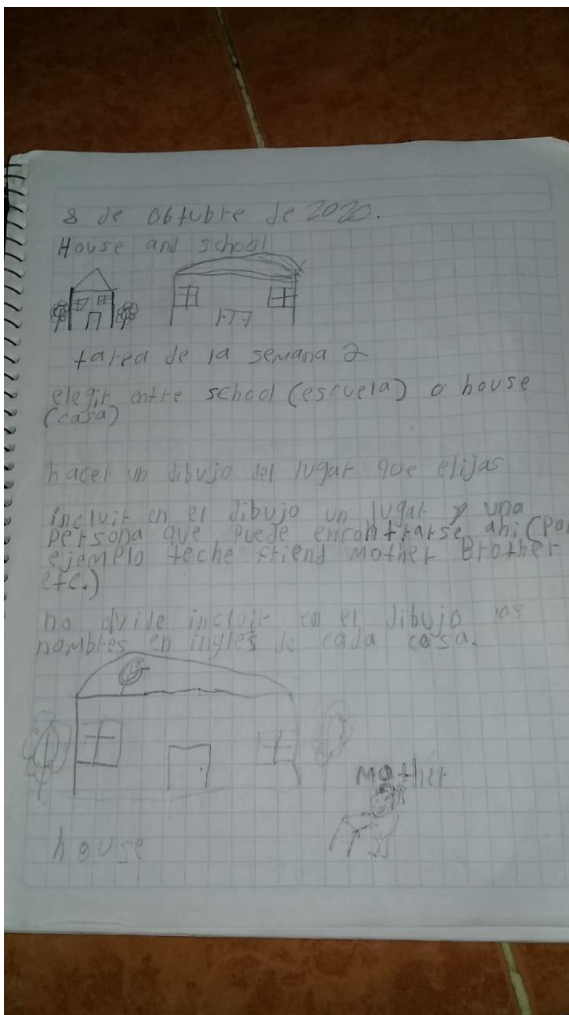 8 de obtubre de 2020.
House and school
tarea de la semana 2
elegir entre school (escuela) o house
(casa)
hacer un dibujo del lugar que elijas
incluir en el dibujo un lugar y una
persona que puede encontrarse ahi (por
ejemplo teche friend mother Brother
etc.)
no dvide incluir en el dibujo los
nombres en ingles de cada cosa.
Mother
house